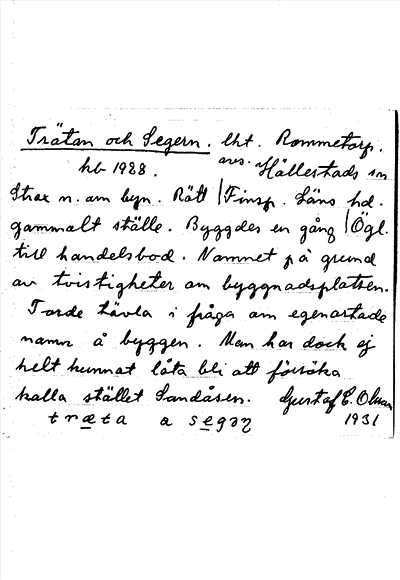 Trätan och Segern. lht. Rommetorp.
hb 1928. avs. Hällestads sn
Strax n. om byn. Rätt Finsp. läns hd.
gammalt ställe. Byggdes en gång Ögl.
till handelsbod. Namnet på grund
av tvistigheter om byggnadsplatsen.
Torde tävla i fråga om egenartade
namn å byggen. Man har dock ej
helt kunnat låta bli att försöka
kalla stället Sandåsen. Gustaf E. Olsson
træta a segəɳ 1931